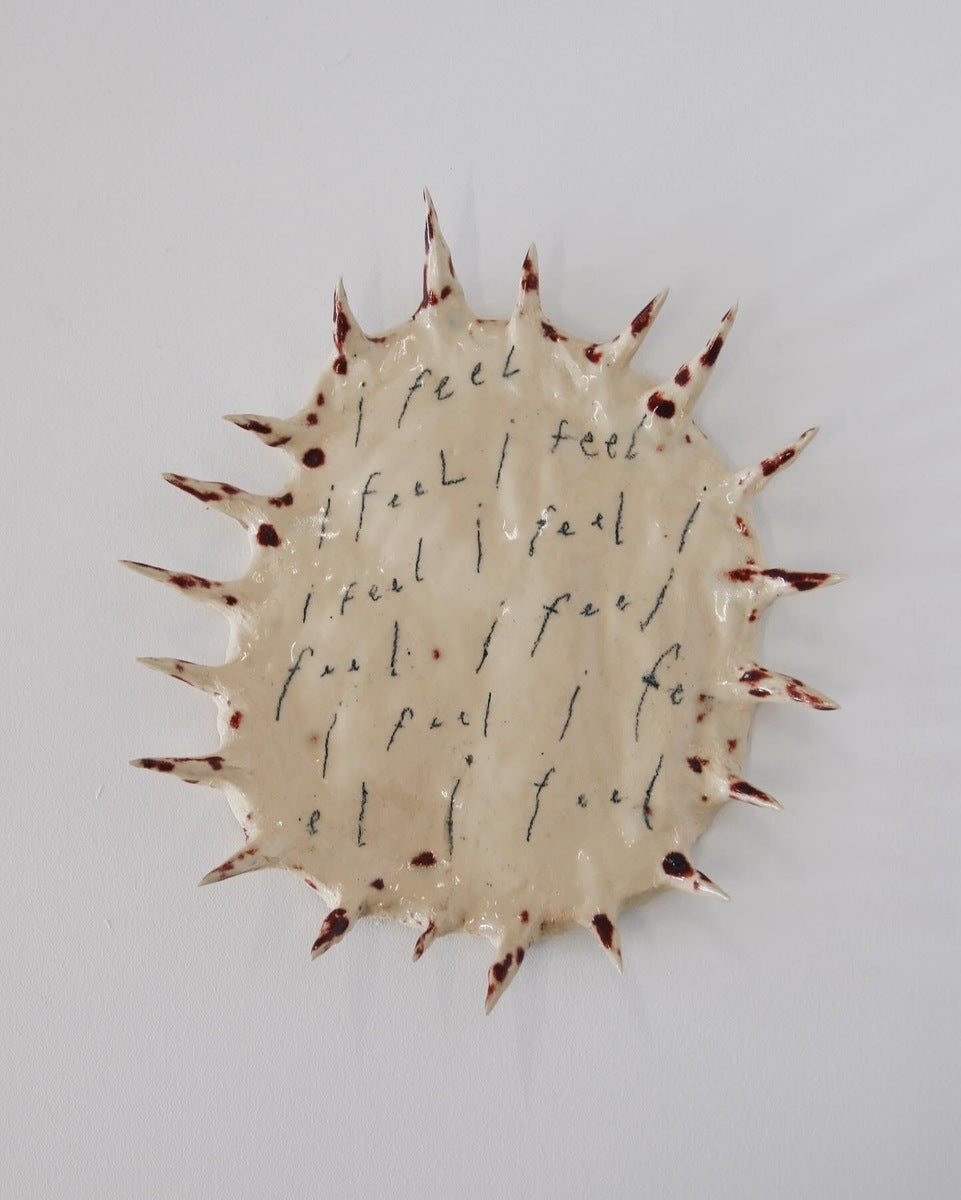 i feel
i feel i feel
i feel i feel i
feel i feel
i feel i fe
el i feel